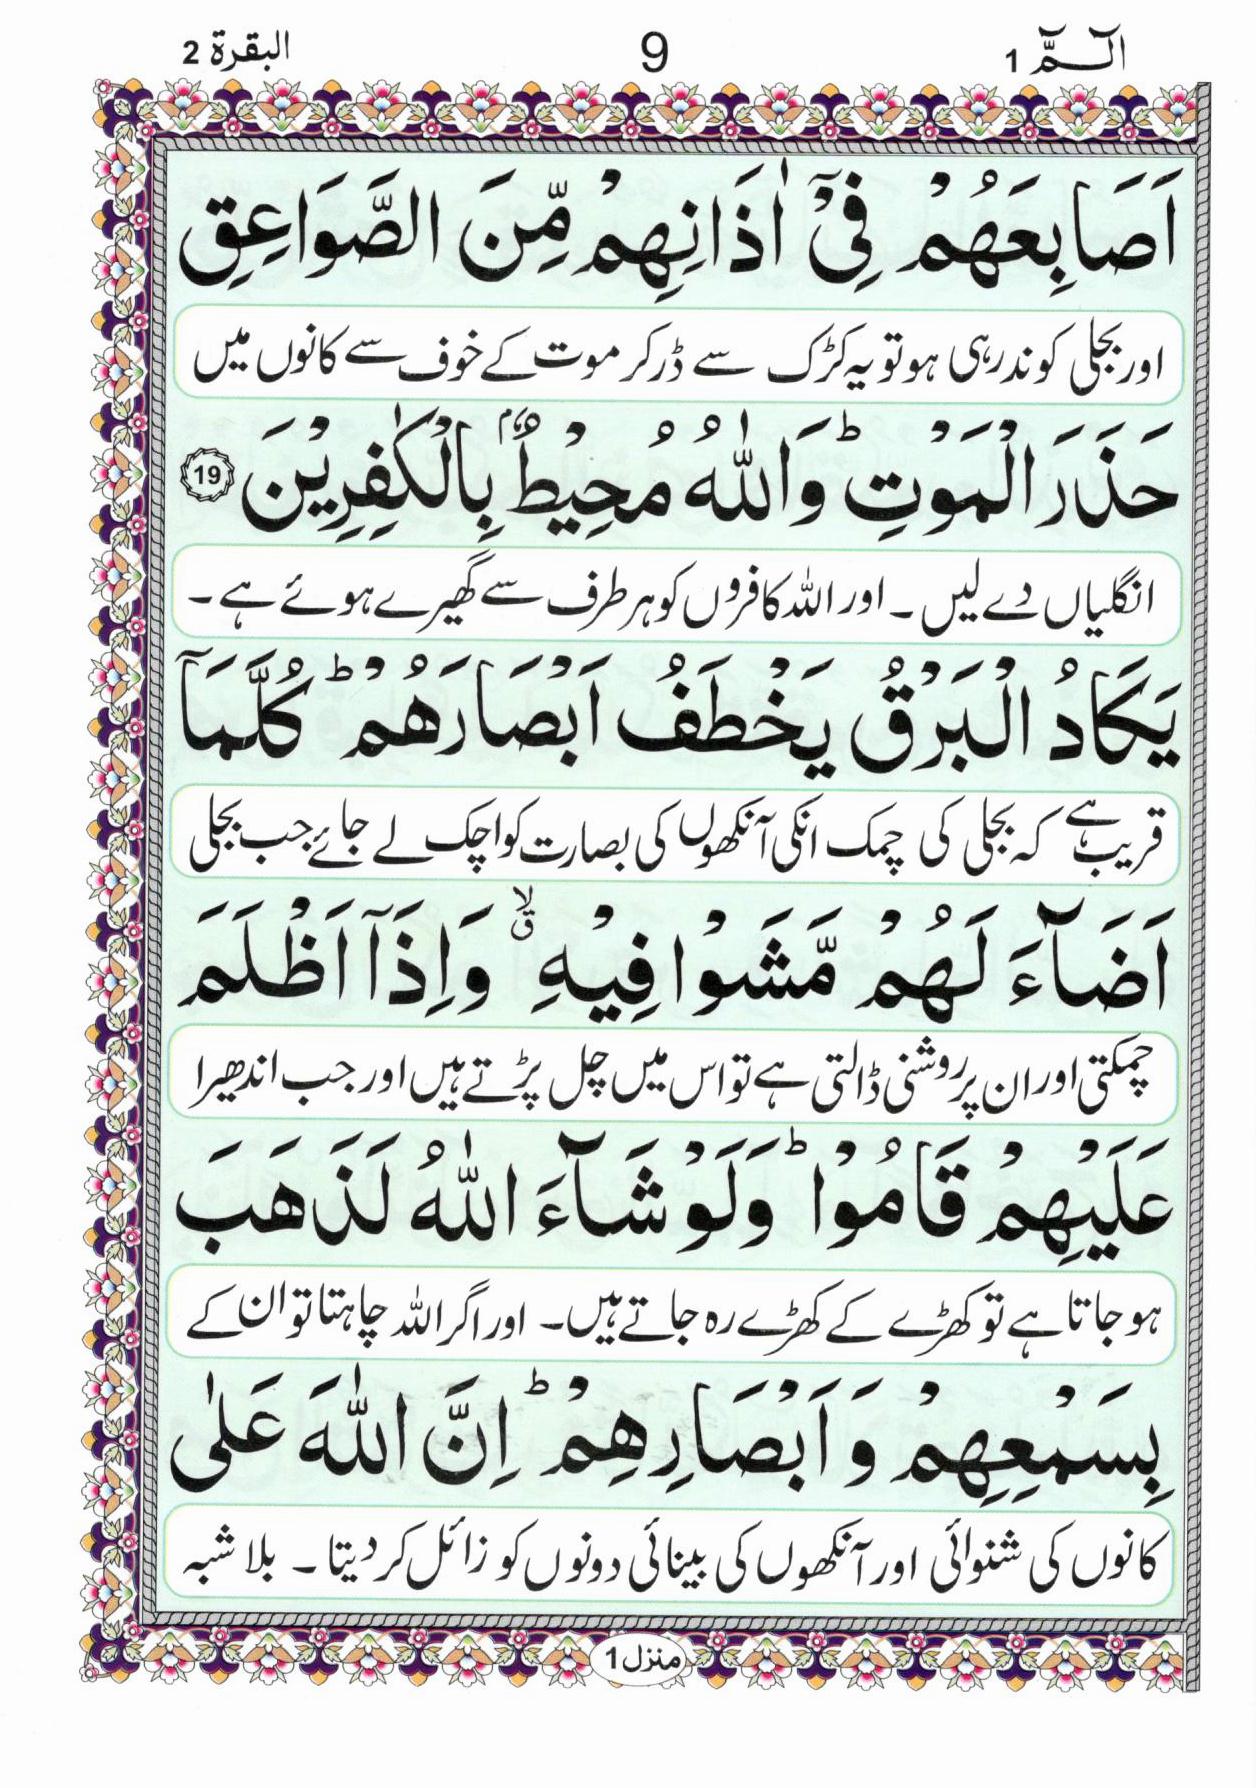 البقرة 2
9
الٓـمّٓ 1
اَصَابِعَهُمْ فِیْۤ اٰذَانِهِمْ مِّنَ الصَّوَاعِقِ
اور بجلی کوندرہی ہو تو یہ کڑک سے ڈر کر موت کے خوف سے کانوں میں
حَذَرَ الْمَوْتِ ؕ وَاللّٰهُ مُحِیْطٌۢ بِالْكٰفِرِیْنَ 19
انگلیاں دے لیں ۔ اور اللہ کافروں کو ہر طرف سے گھیرے ہوئے ہے ۔
یَكَادُ الْبَرْقُ یَخْطَفُ اَبْصَارَهُمْ ؕ كُلَّمَاۤ
قریب ہے کہ بجلی کی چمک انکی آنکھوں کی بصارت کو اچک لے جائے جب بجلی
اَضَآءَ لَهُمْ مَّشَوْا فِیْهِ ۙۗ وَاِذَاۤ اَظْلَمَ
چمکتی اور ان پر روشنی ڈالتی ہے تو اس میں چل پڑتے ہیں اور جب اندھیرا
عَلَیْهِمْ قَامُوْا ؕ وَلَوْ شَآءَ اللّٰهُ لَذَهَبَ
ہو جاتا ہے تو کھڑے کے کھڑے رہ جاتے ہیں۔ اور اگر اللہ چاہتا تو ان کے
بِسَمْعِهِمْ وَ اَبْصَارِهِمْ ؕ اِنَّ اللّٰهَ عَلٰی
کانوں کی شنوائی اور آنکھوں کی بینائی دونوں کو زائل کر دیتا ۔ بلا شبہ
منزل 1